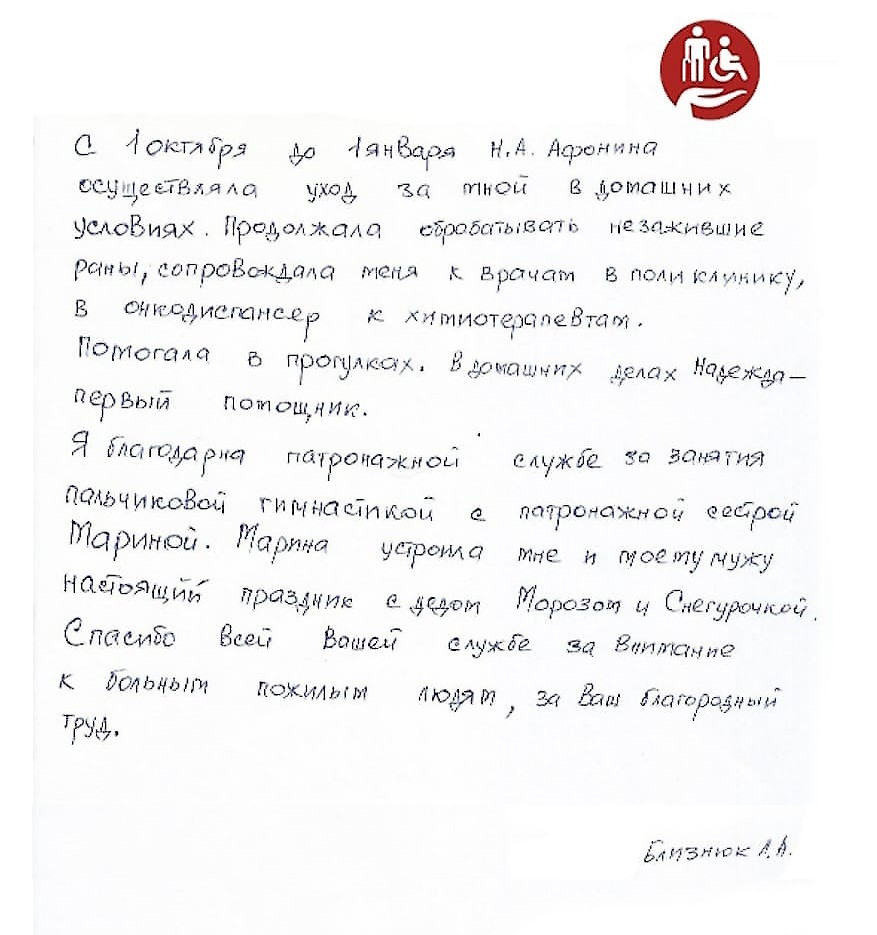 С 1 октября до 1 января Н.А. Афонина
осуществляла уход за мной в домашних
условиях. Продолжала обробатывать незажившие
раны, сопровождала меня к врачам в поликлинику,
в онкодиспансер к химиотерапевтам.
Помогала в прогулках. В домашних делах Надежда –
первый помощник.
Я благодарна патронажной службе за занятия
пальчиковой гимнастикой с патронажной сестрой
Мариной. Марина устроила мне и моему мужу
настоящий праздник с дедом Морозом и Снегурочкой.
Спасибо всей Вашей службе за внимание
к больным пожилым людям, за Ваш благородный
труд.
Близнюк Л.А.